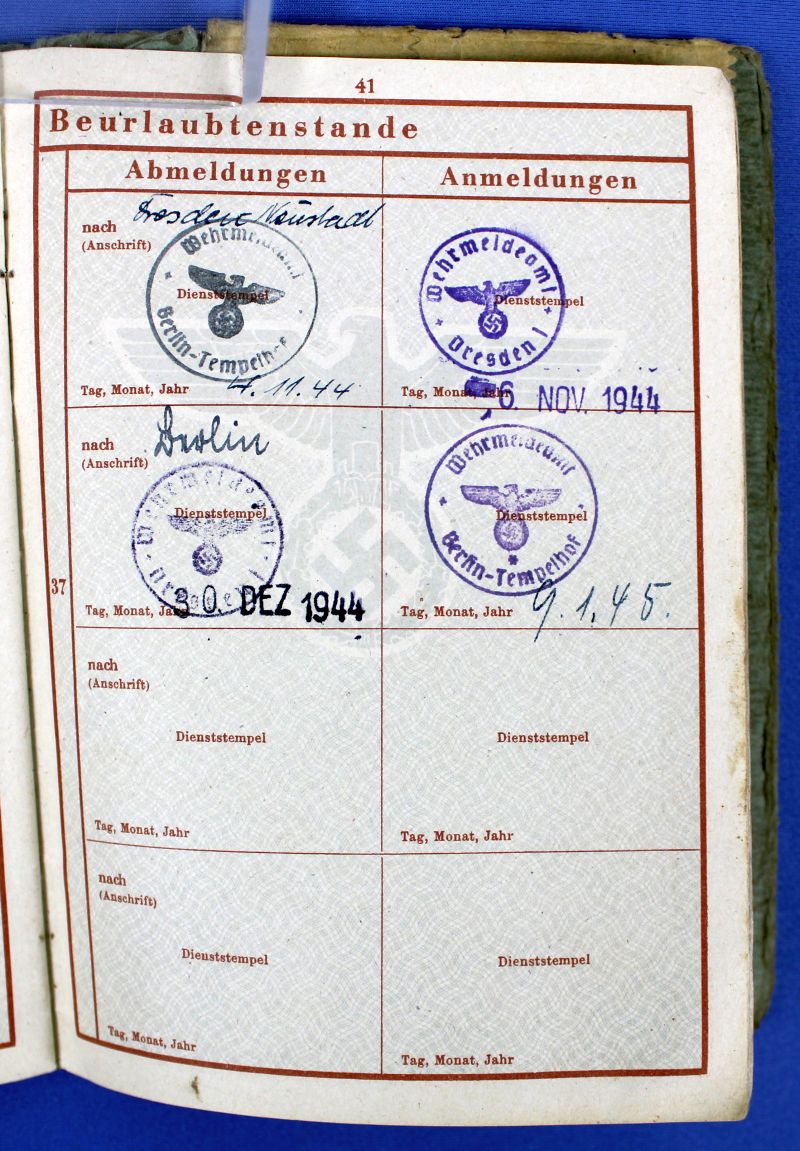 41
Beurlaubtenstande
Abmeldungen
Anmeldungen
nach Dresden Neustadt
(Anschrift)
Wehrmeldeamt
Dienststempel
Berlin-Tempelhof
Tag, Monat, Jahr 4.11.44
Wehrmeldeamt
Dienststempel
Dresden I
Tag, Monat, Jahr
6. NOV. 1944
nach Berlin
(Anschrift)
Wehrmeldeamt
Dienststempel
Dresden I
Tag, Monat, Jahr 30. DEZ 1944
Wehrmeldeamt
Dienststempel
Berlin-Tempelhof
Tag, Monat, Jahr 9.1.45.
37
nach
(Anschrift)
Dienststempel
Tag, Monat, Jahr
Dienststempel
Tag, Monat, Jahr
nach
(Anschrift)
Dienststempel
Tag, Monat, Jahr
Dienststempel
Tag, Monat, Jahr